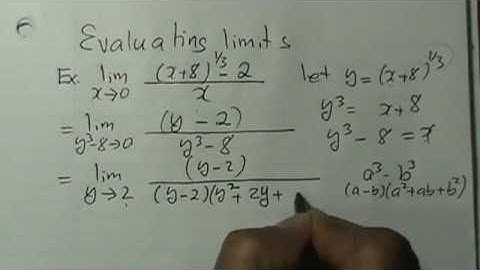 Evaluating limits
Ex. lim x→0 ((x+8)^1/3 - 2) / x
let y = (x+8)^1/3
y³ = x+8
y³ - 8 = x
= lim y³-8→0 (y - 2) / (y³ - 8)
= lim y→2 (y-2) / ((y-2)(y²+ 2y +
a³ - b³
(a-b)(a²+ab+b²)